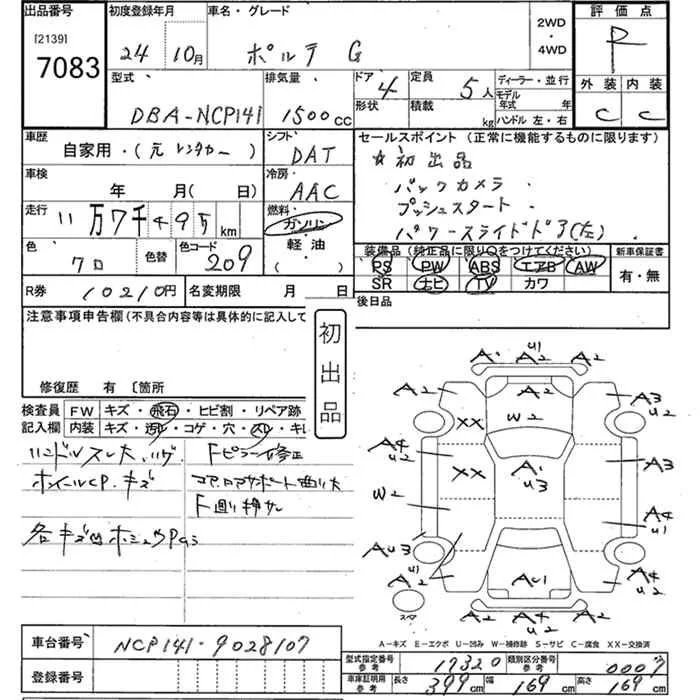 出品番号
[2139]
7083
初度登録年月
24 10月
車名・グレード
ポルテ G
2WD
・
4WD
評価点
R
外装 内装
C C
型式
DBA-NCP141
排気量
1500cc
ドア 4
形状
定員 5人
積載 kg
ディーラー・並行
モデル年式 年
ハンドル 左・右
車歴
自家用・(元レンタカー)
シフト
DAT
セールスポイント (正常に機能するものに限ります)
☆初出品
バックカメラ
プッシュスタート
パワースライドドア(左)
車検
年 月( 日)
冷房
AAC
走行
11万7千495km
燃料
ガソリン
軽・油
( )
色
クロ
色替
色コード
209
装備品 (純正品に限り○をつけてください)
PS PW ABS エアB AW
SR ナビ TV カワ
新車保証書
有・無
R券 10210円
名変期限 月 日
後日品
注意事項申告欄(不具合内容等は具体的に記入して
初出品
修復歴 有 〔箇所
検査員
記入欄
FW キズ・飛石・ヒビ割・リペア跡
内装 キズ・汚レ・コゲ・穴・スレ・キレ
ハンドルスレ大、ハゲ
ホイールCP.キズ
Fピラー修正
コアロアサポート曲り大
F廻り押サレ
A1 U1 A2 A2
A2
A3 U2
XX
W2
A4 U2
XX
A1 U3
A3
W2
A4 U1
AU3
U1 A2
AU1
A4 U2
A2 A4 U2 A2
スペア
A-キズ E-エクボ U-凹み W-補修跡 S-サビ C-腐食 XX-交換済
車台番号
NCP141-9028107
登録番号
型式指定番号
参考
17320
類別区分番号
参考
0007
車庫証明用
参考
長さ 399cm
幅 169cm
高さ 169cm